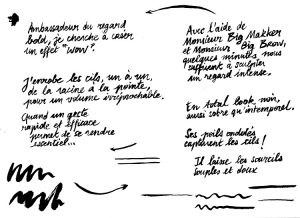 Ambassadeur du regard
bold, je cherche à créer
un effet "WOW".
J'enrobe les cils, un à un,
de la racine à la pointe,
pour un volume irréprochable.
Quand un geste
rapide et efficace
permet de se rendre
essentiel...
Avec l'aide de
Monsieur Big Makker
et Monsieur Big Brow,
quelques minutes nous
suffisent à soigner
un regard intense.
En total look noir,
aussi sorte qu'intemporel.
Ses poils ondulés
capturent les cils !
Il laisse les sourcils
souples et doux